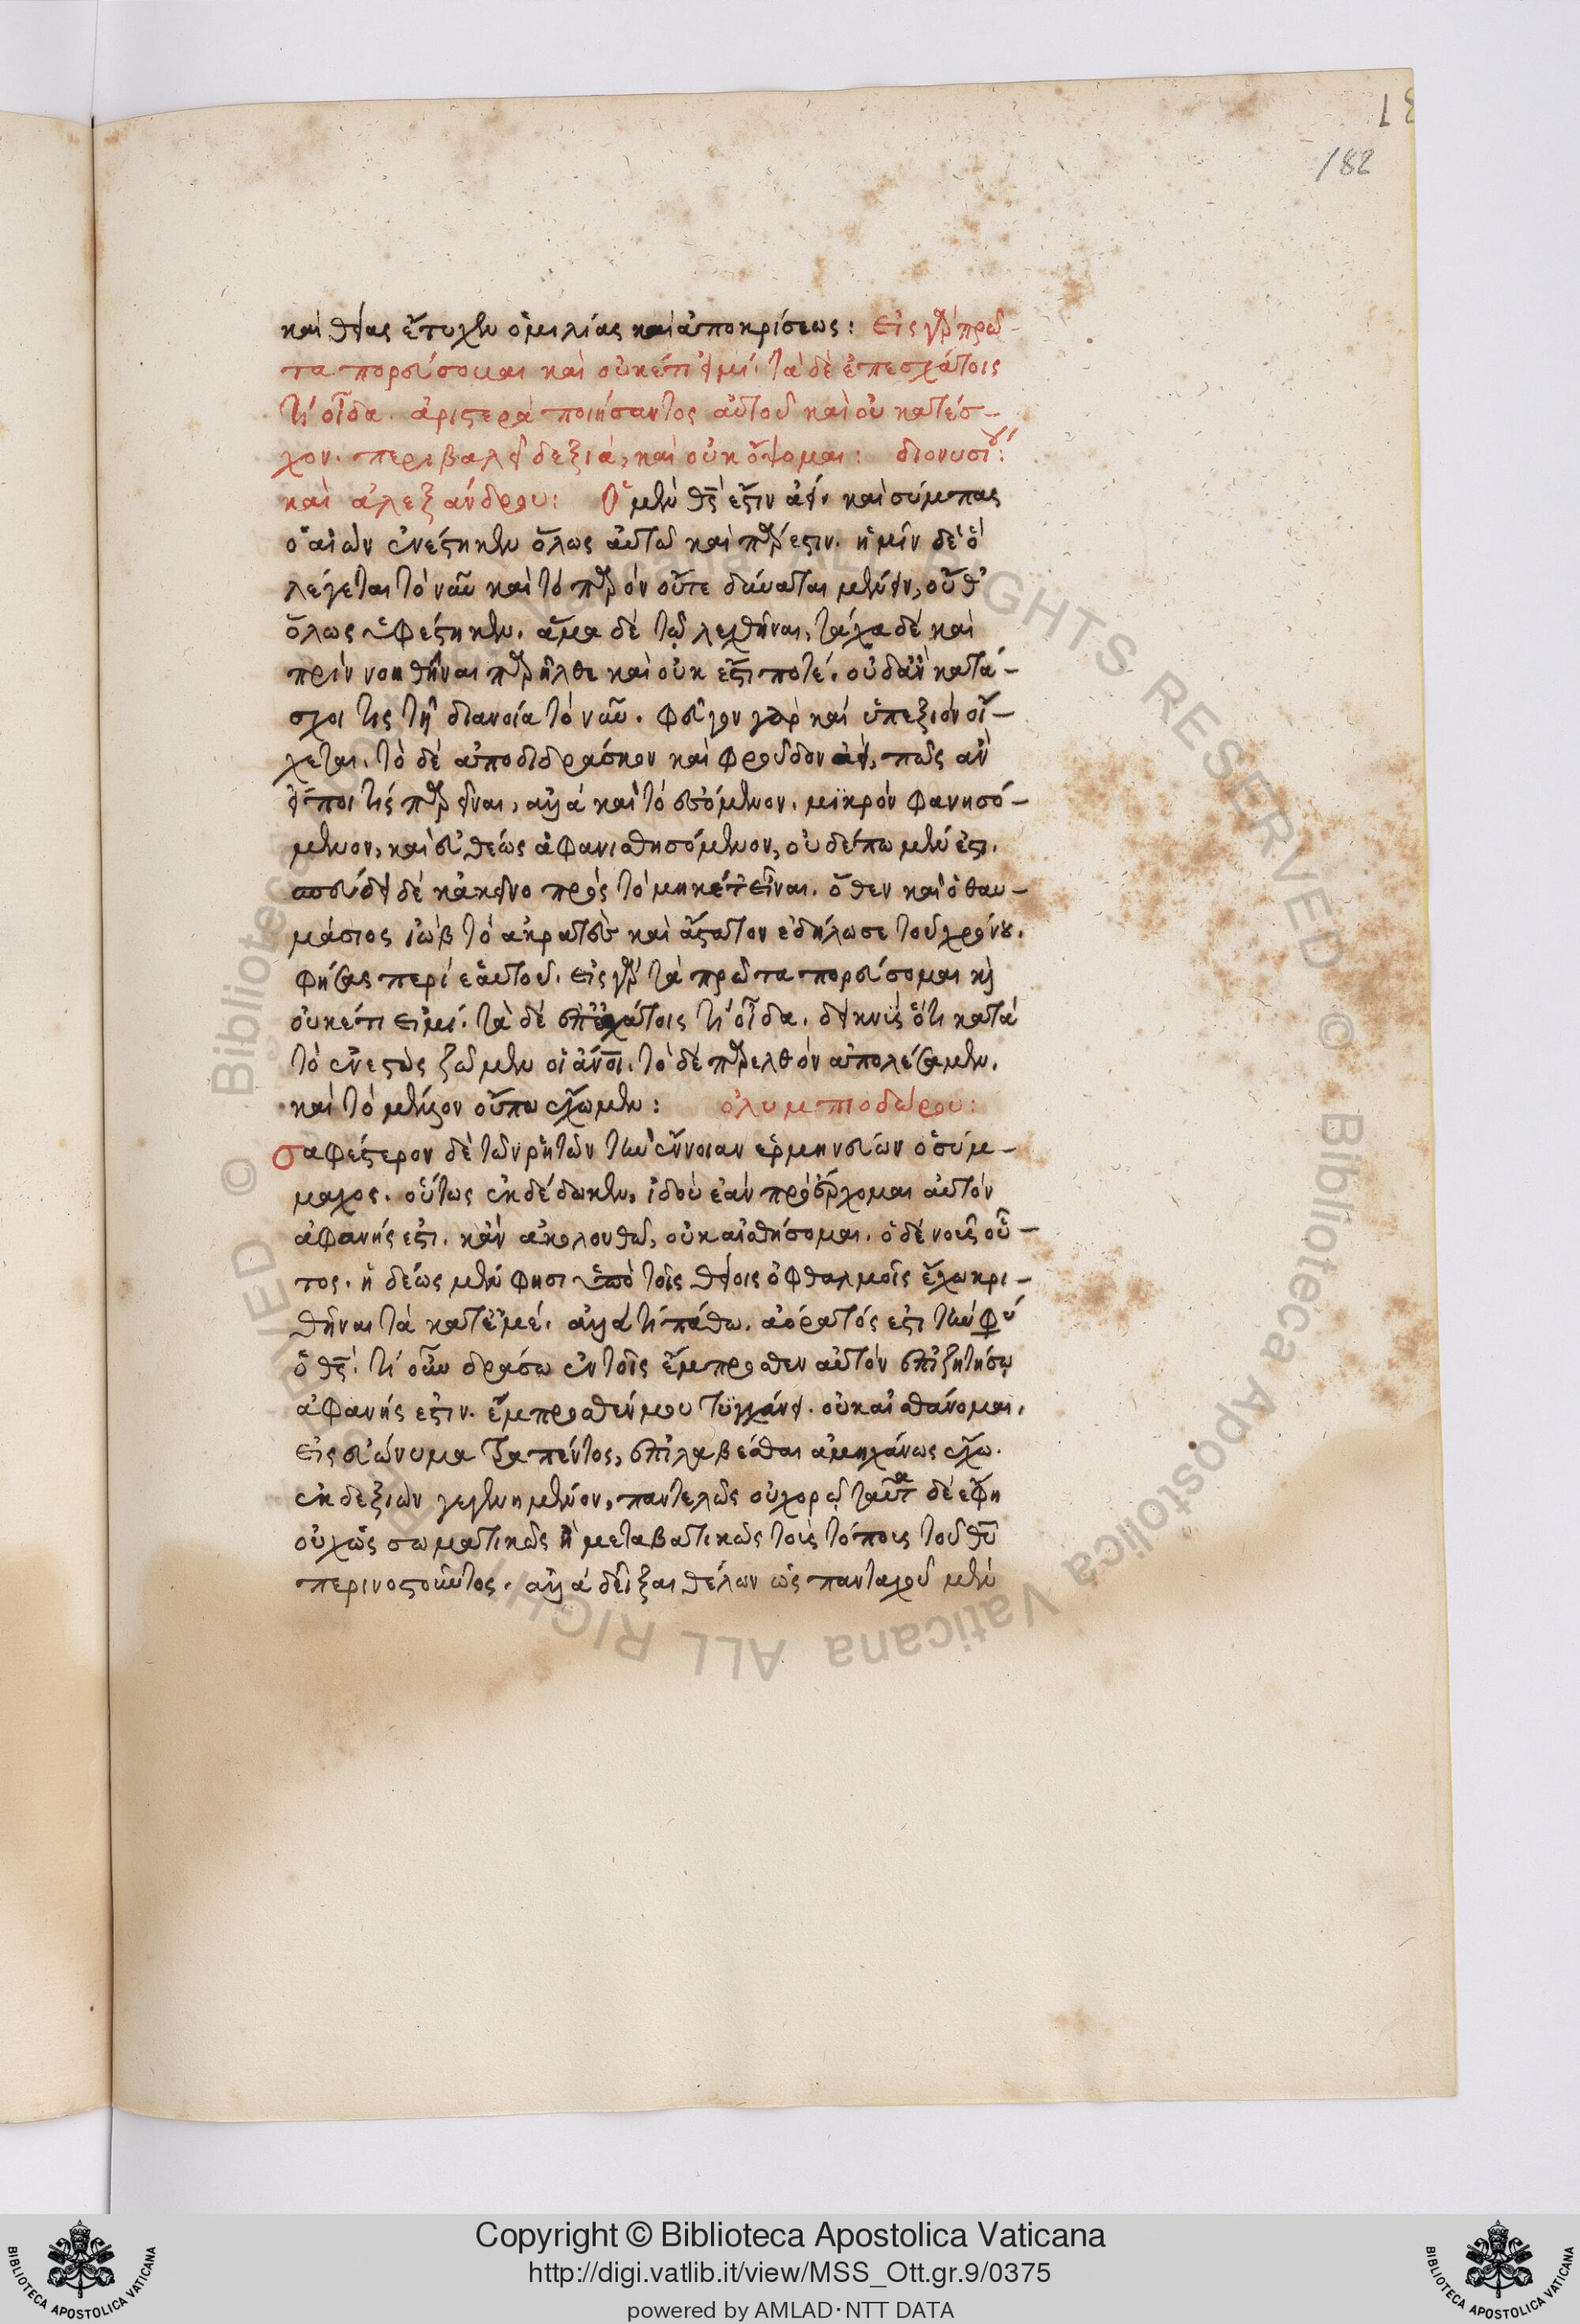 182
καὶ θείας ἔτυχεν ὁμιλίας καὶ ἀποκρίσεως: εἰς γὰρ πρῶ-
τα πορεύσομαι καὶ οὐκέτι εἰμί. τὰ δὲ ἐπεσχάτοις
τί οἶδα. ἀριστερὰ ποιήσαντος αὐτοῦ καὶ οὐ κατέσ-
χον. περιβαλεῖ δεξιά, καὶ οὐκ ὄψομαι: διονυσίου:
καὶ ἀλεξάνδρου: Ὁ μὲν θς ἐστιν ἀεί. καὶ σύμπας
ὁ αἰὼν ἐνέστηκεν ὅλως αὐτῶ καὶ πάρεστιν. ἡμῖν δὲ ὃ
λέγεται τὸ νῦν καὶ τὸ παρὸν οὔτε δύναται μένειν, οὔθ'
ὅλως ὑφέστηκεν. ἅμα δὲ τῷ λεχθῆναι, τάχα δὲ καὶ
πρὶν νοηθῆναι παρῆλθε καὶ οὐκ ἔστι ποτέ. οὐδ' ἂν κατά-
σχοι τις τῇ διανοία τὸ νῦν. φεῦγον γὰρ καὶ ὑπεξιὸν οἴ-
χεται. τὸ δὲ ἀποδιδράσκον καὶ φροῦδον ἀεί, πῶς ἂν
εἴποι τίς παρεῖναι, ἀλλὰ καὶ τὸ ἐσόμενον. μικρὸν φανησό-
μενον, καὶ εὐθέως ἀφανισθησόμενον, οὐδέπω μέν ἐστι.
σπεύδει δὲ κἀκεῖνο πρὸς τὸ μηκέτ' εἶναι. ὅθεν καὶ ὁ θαυ-
μάσιος ἰὼβ τὸ ἀκρατὲς καὶ ἄστατον ἐδήλωσε τοῦ χρόνου.
φήσας περὶ ἑαυτοῦ. εἰς γὰρ τὰ πρῶτα πορεύσομαι καὶ
οὐκέτι εἰμί. τὰ δὲ ἐπεσχάτοις τί οἶδα. δεικνὺς ὅτι κατὰ
τὸ ἐνεστὼς ζῶμεν οἱ ἄνοι. τὸ δὲ παρελθὸν ἀπολέσαμεν.
καὶ τὸ μέλλον οὔπω ἔχωμεν: ὀλυμπιοδώρου:
σαφέστερον δὲ τῶν ῥητῶν τὴν ἔννοιαν ἑρμηνεύων ὁ σύμ-
μαχος. οὕτως ἐκδέδωκεν, ἰδοὺ ἐὰν προέρχομαι αὐτὸν
ἀφανής ἐστι. κἂν ἀκολουθῶ, οὐκ αἰσθήσομαι. ὁ δὲ νοῦς οὗ-
τος. ἡδέως μὲν φησι ὑπὸ τοῖς θείοις ὀφθαλμοῖς ἔχω κρι-
θῆναι τὰ κατ' ἐμέ. ἀλλὰ τί πάθω. ἀόρατός ἐστι τὴν φύ
ὁ θς. τί οὖν δράσω ἐν τοῖς ἔμπροσθεν αὐτὸν ἐπιζητήσω
ἀφανής ἐστιν. ἔμπροσθέν μου τυγχάνει. οὐκ αἰσθάνομαι.
εἰς εὐώνυμα τραπέντος, ἐπιλαβέσθαι ἀμηχάνως ἔχω.
ἐκ δεξιῶν γεγενημένον, παντελῶς οὐχ ορῶ ταῦτα δὲ ἔφη
οὐχ ὡς σωματικῶς ἢ μεταβατικῶς τοῖς τόποις τοῦ θυ
περινοστοῦντος. ἀλλὰ δεῖξαι θέλων ὡς πανταχοῦ μὲν
Copyright © Biblioteca Apostolica Vaticana
http://digi.vatlib.it/view/MSS_Ott.gr.9/0375
powered by AMLAD·NTT DATA
BIBLIOTECA APOSTOLICA VATICANA
BIBLIOTECA APOSTOLICA VATICANA